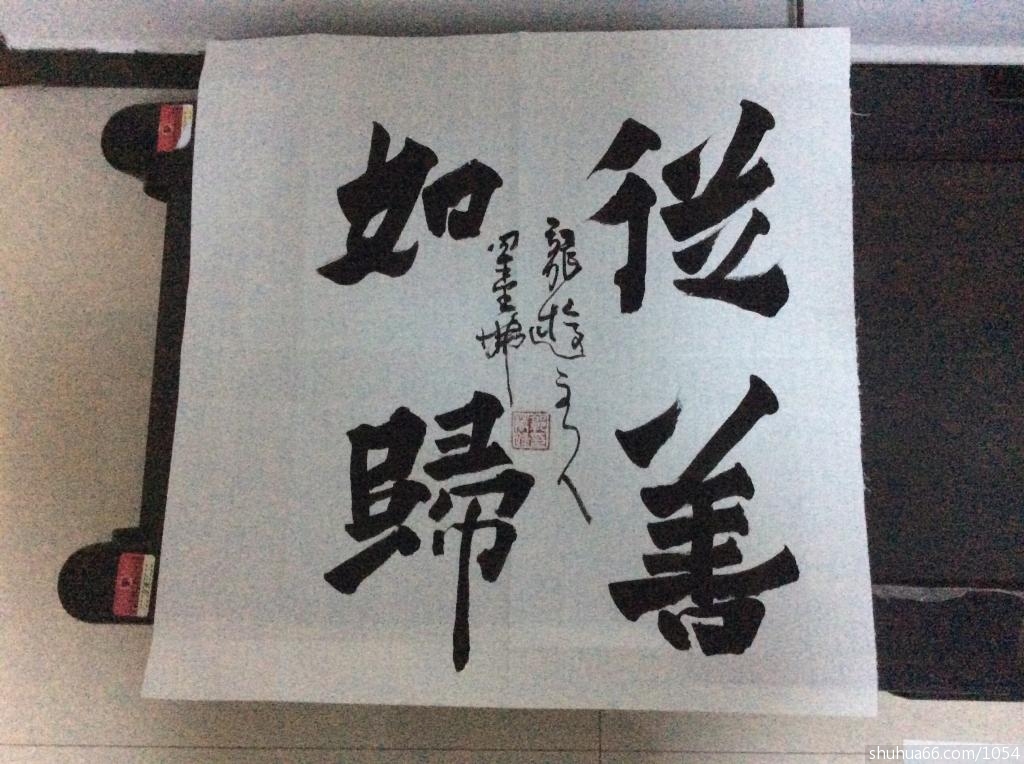 從善
如歸
龍遊主人
shuhua66.com/1054